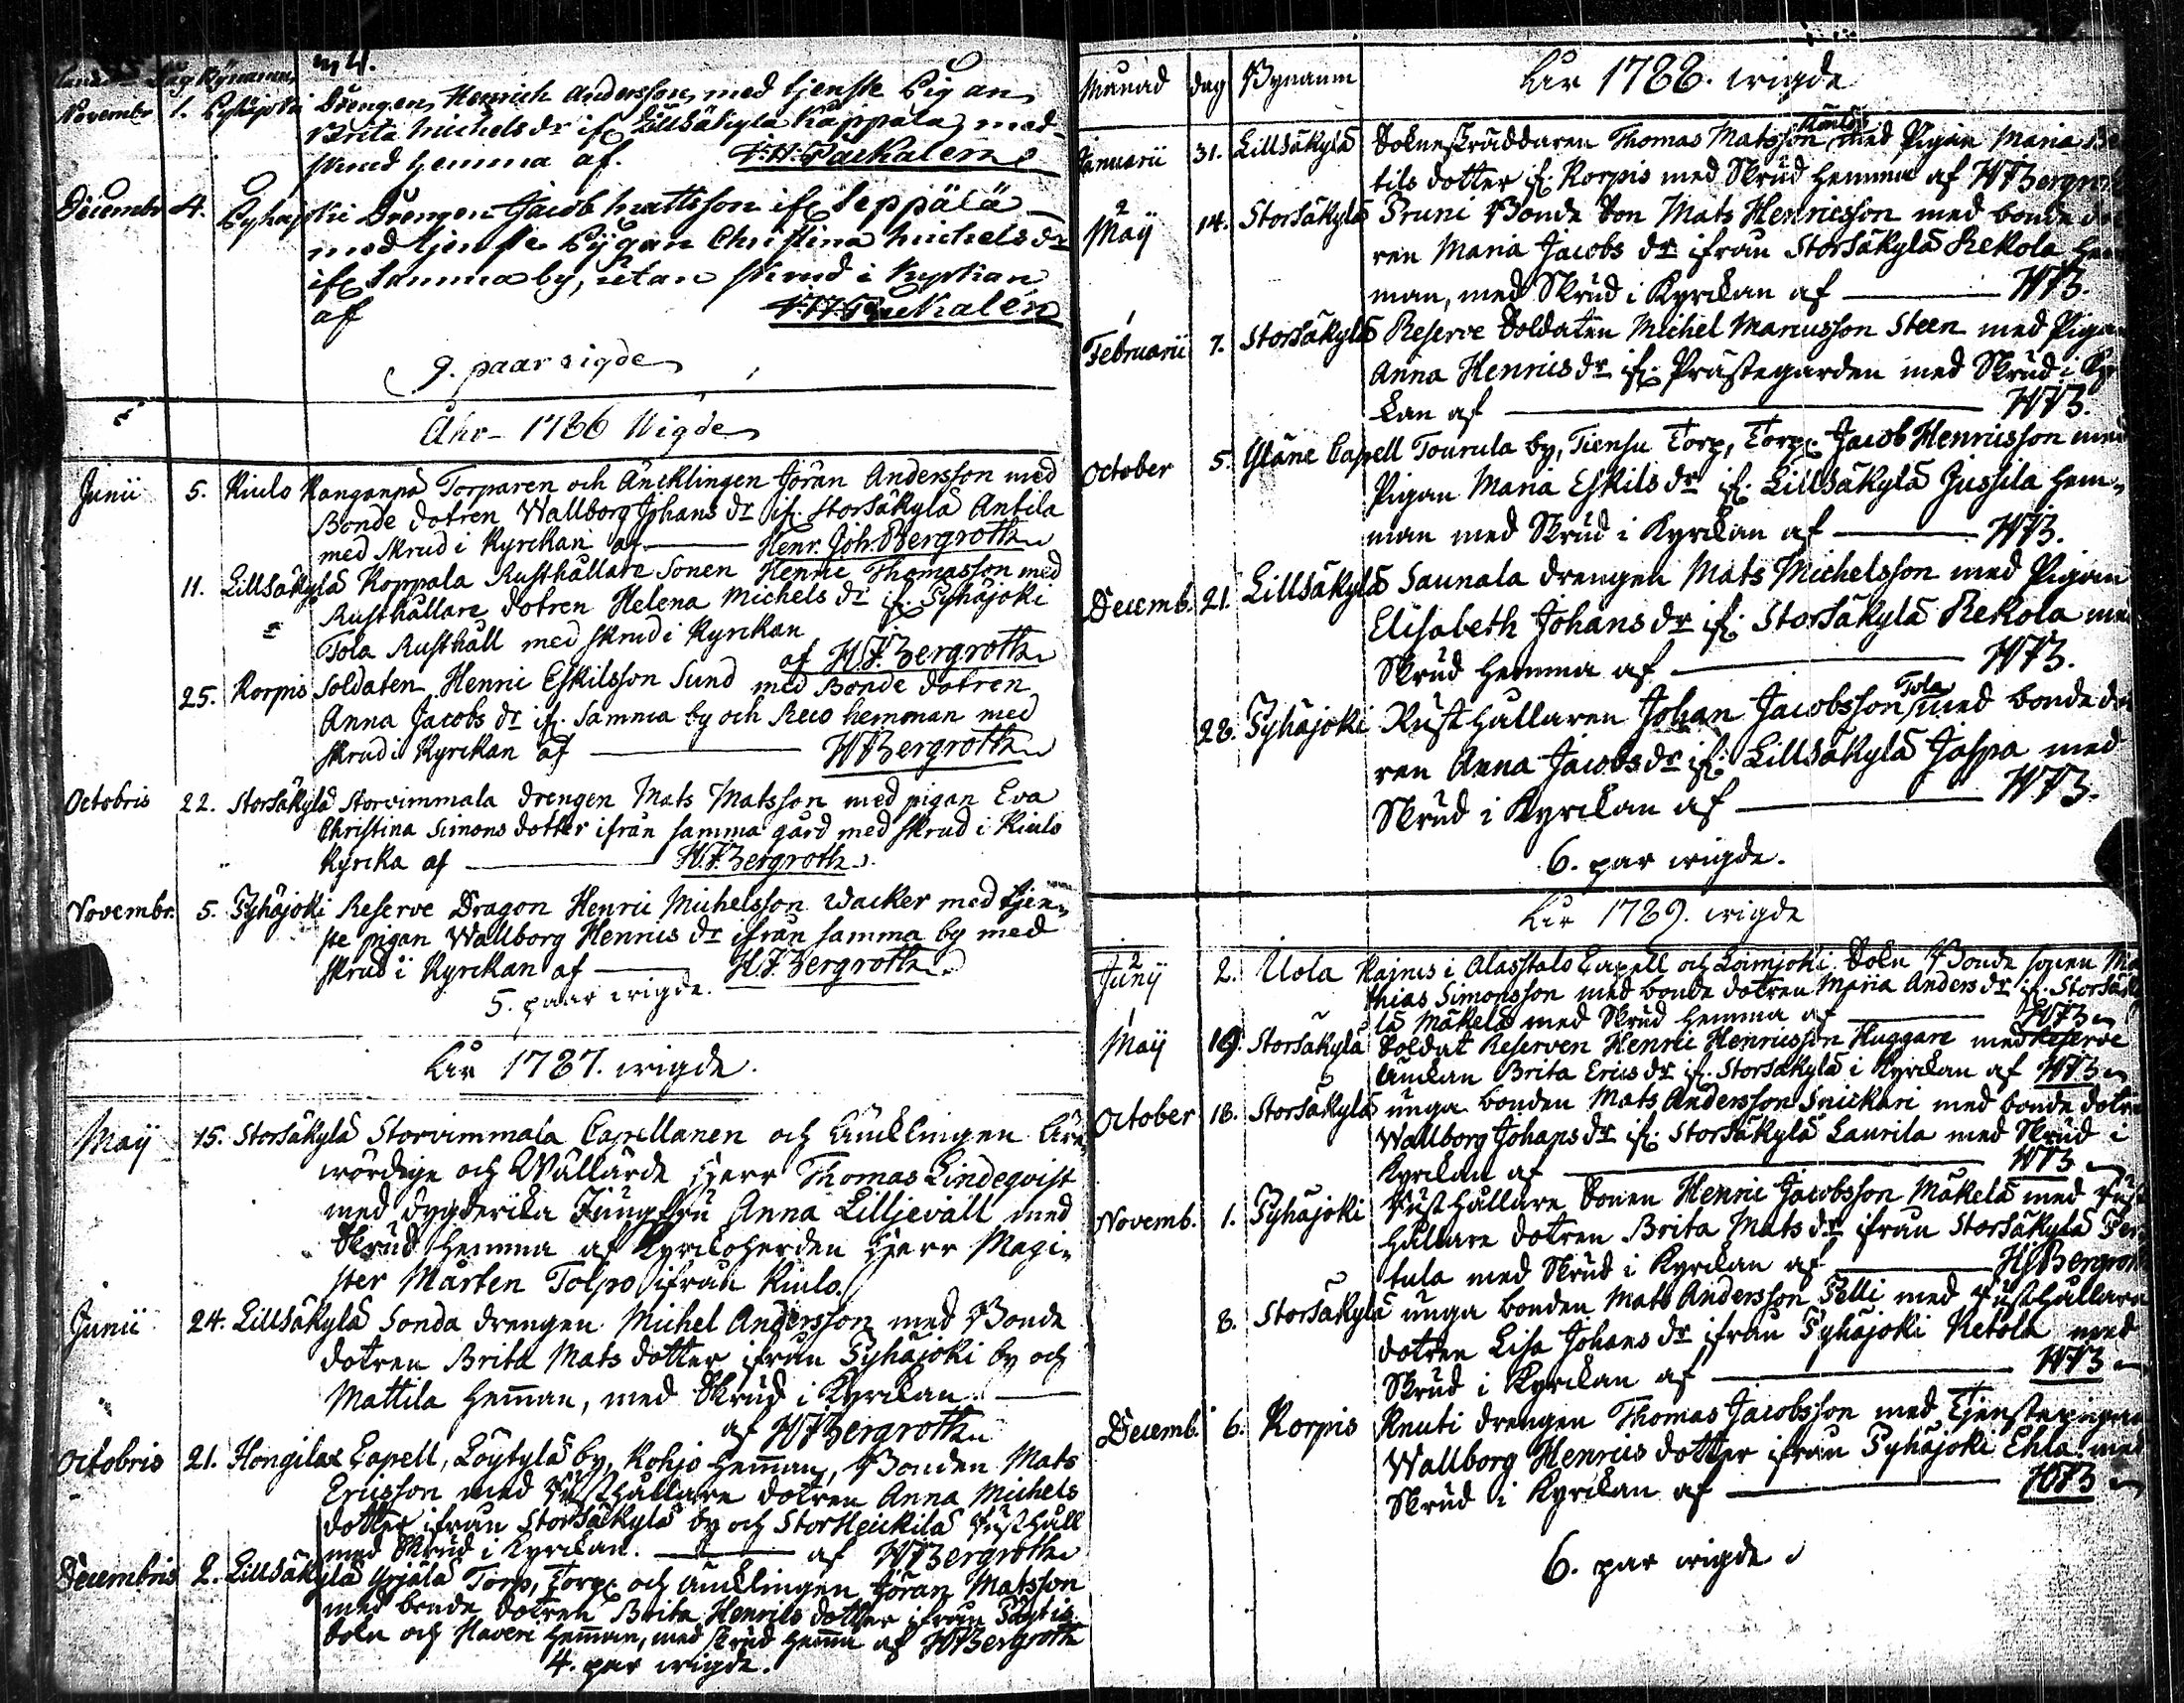 Novembr 1. Pyhäjoki Drengen Henrich Andersson, med tjenste Pigan
Brita Michels dr ifr Lillsäkylä Käppälä, med
skrud hemma af.
Decembr 4. Pyhäjoki Drengen Jacob Mattsson ifr Seppälä
med tjenste Pygan Christina Michels dr
ifr Samma by, utan skrud i Kyrkan
af
9. paar vigde
Åhr 1786 Wigde
Junii 5. Kiulo Kanganpä Torparen och Äncklingen Jöran Andersson med
Bonde dotren Wallborg Johans dr ifr. Storsäkylä Antila
med skrud i Kyrckan af Henr. Joh. Bergroth
11. Lillsäkylä Koppala Rusthållare Sonen Henric Thomasson med
Rusthållare dotren Helena Michels dr ifr. Pyhäjoki
Tola Rusthåll med skrud i Kyrckan
af H.J. Bergroth
25. Korpis Soldaten Henric Eskilsson Sund med Bonde dotren
Anna Jacobs dr ifr. Samma by och Reco hemman med
skrud i Kyrckan af HJBergroth
Octobris 22. Storsäkylä Storvimmala drengen Mats Matsson med pigan Eva
Christina Simons dotter ifrån samma gård med skrud i Kiulo
Kyrcka af H.J. Bergroth
Novembr. 5. Pyhäjoki Reserve Dragon Henric Michelsson Wacker med tjen-
ste pigan Wallborg Henrics dr ifrån samma by med
skrud i Kyrckan af H.J. Bergroth
5. paar wigde.
Åhr 1787. wigde.
Maij 15. Storsäkylä Storvimmala Capellanen och Äncklingen
wördige och Wällärde Herr Thomas Lindeqvist
med dygderika Jungfru Anna Lilljevall med
Skrud hemma af Kyrckoherden Herr Magi-
ster Mårten Tolpo ifrån Kiulo.
Junii 24. Lillsäkylä Sonda drengen Michel Andersson med Bonde
dotren Brita Mats dotter ifrån Pyhäjoki by och
Mattila Hemman, med Skrud i Kyrckan
af HJBergroth
Octobris 21. Hongilax Capell, Löytylä by, Kohjo Hemman, Bonden Mats
Ericsson med Rusthållare dotren Anna Michels
dotter ifrån Storsäkylä by och StorHeickilä Rusthåll
med Skrud i Kyrckan. af HJBergroth
Decembris 2. Lillsäkylä Yrjälä Torp, Torp. och Äncklingen Jöran Matsson
med bonde dotren Brita Henrics dotter ifrån
och Haveri Hemman, med skrud hemma af HJBergroth
4. par wigde.
Månad dag Bynamn Åhr 1788. wigde
Januarii 31. Lillsäkylä Sokneskräddaren Thomas Matsson med Pigan Maria Be
tils dotter ifr. Korpis med Skrud hemma af HJBergroth
2
Maij 14. Storsäkylä Pruni Bonde Son Mats Henricsson med bonde do
ren Maria Jacobs dr ifrån Storsäkylä Rekola Hem
man, med Skrud i Kyrckan af HJB.
1
Februarii 7. Storsäkylä Reserve Soldaten Michel Marcusson Steen med Piga
Anna Henrics dr ifr. Prästegården med Skrud i Kyr
kan af HJB.
October 5. Yläne Capell Tourula by, Tiensu Torp, Torp. Jacob Henricsson med
Pigan Maria Eskils dr ifr. Lillsäkylä Jussila Hem-
man med Skrud i Kyrckan af HJB.
Decemb. 21. Lillsäkylä Saunala drengen Mats Michelsson med Pigan
Elisabeth Johans dr ifr. Storsäkylä Rekola me
Skrud hemma af HJB.
28. Pyhäjoki Rusthållaren Johan Jacobsson Tola med bonde do
ren Anna Jacobs dr ifr. Lillsäkylä Jaspa med
Skrud i Kyrckan af HJB.
6. par wigde.
Åhr 1789. wigde
2
Junij 2. Uola Kajnus i Alasstalo Capell och Loimjoki Sokn Bonde sonen Ma
thias Simonsson med bonde dotren Maria Anders dr ifr. Storsäky
lä Mäkelä med Skrud hemma af HJB
1
Maij 19. Storsäkylä Soldat Reserven Henric Henricsson Huggare med Reserve
Änckan Brita Erics dr ifr. Storsäkylä i Kyrckan af HJB
October 18. Storsäkylä unga bonden Mats Andersson Snickari med bonde dotre
Wallborg Johans dr ifr. Storsäkylä Laurila med Skrud i
Kyrckan af HJB
Novemb. 1. Pyhäjoki Rusthållare Sonen Henric Jacobsson Mäkelä med Rust
hållare dotren Brita Mats dr ifrån Storsäkylä Per
tula med Skrud i Kyrckan af HJBergroth
8. Storsäkylä unga bonden Mats Andersson Pelli med Rusthållare
dotren Lisa Johans dr ifrån Pyhäjoki Ketola med
Skrud i Kyrckan af HJB
Decemb. 6. Korpis Knuti drengen Thomas Jacobsson med Tjenstepigan
Wallborg Henrics dotter ifrån Pyhäjoki Ehla med
Skrud i Kyrckan af HJB
6. par wigde